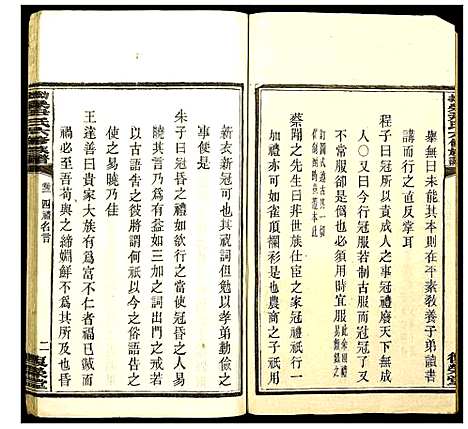 舉無曰未能其本則在平素教養子弟讀書
講而行之直反掌耳
程子曰冠所以責成人之事冠禮廢天下無成
人〇又曰今行冠服若制古服而冠冠了又
不常服卻是偽也必用時宜服
蔡聞之先生曰非世族仕宦之家冠禮只一
加禮亦可如雀頂襴衫是也農商之子祇用
新衣新冠可也其祝詞但勉以孝弟勤儉之
事便是
朱子曰冠昏之禮如欲行之當使冠昏之人易
曉其言乃為有益如三加之詞出門之戒若
以古語告之彼將謂何祇以今之俗語告之
使之易曉乃佳
王達善曰貴家大族有為富不仁者福已滅而
禍必至吾苟與之締姻鮮不為其所及也昏
卷一 四禮名言
二
復榮堂